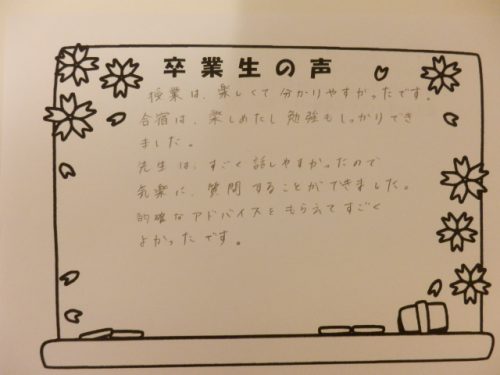 卒業生の声
授業は、楽しくて分かりやすかったです。
合宿は、楽しめたし勉強もしっかりでき
ました。
先生は、すごく話しやすかったので
気楽に、質問することができました。
的確なアドバイスをもらえてすごく
よかったです。